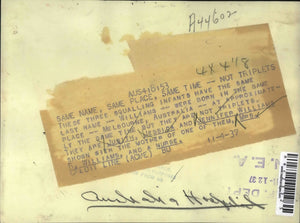 A44602
AUS410151
4 x 4 1/8
SAME NAME, SAME PLACE, SAME TIME -- NOT TRIPLETS
THESE THREE SQUALLING INFANTS HAVE THE SAME
LAST NAME -- WILLIAMS -- WERE BORN IN THE SAME
PLACE -- MELBOURNE, AUSTRALIA -- AT APPROXIMATE-
LY THE SAME TIME BUT THEY ARE NOT TRIPLETS.
THEY ARE
SHOWN WITH THE MOTHER OF ONE OF THEM
WILLIAMS) AND A NURSE.
CREDIT LINE (ACME) BU
11-4-37
DEPT
N.E.A.
Australia Hospital